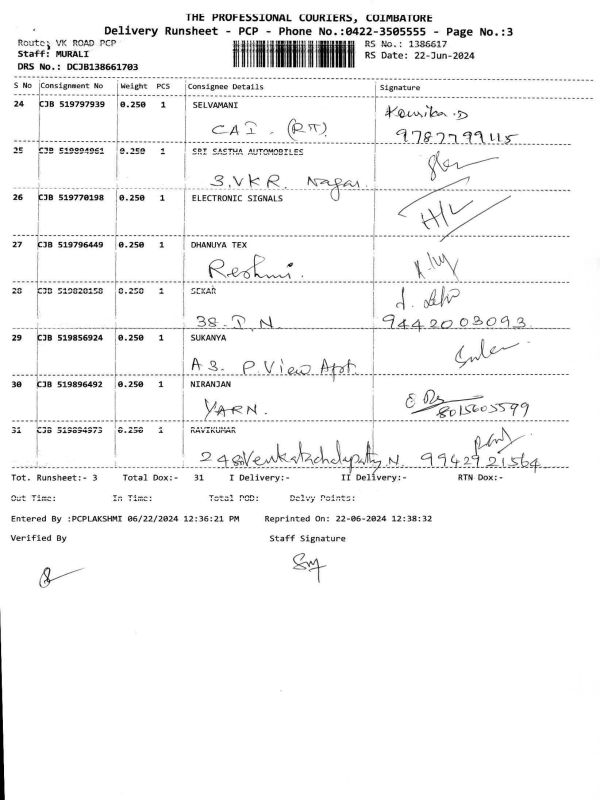 THE PROFESSIONAL COURIERS, COIMBATORE
Delivery Runsheet - PCP - Phone No.:0422-3505555 - Page No.:3
Route: VK ROAD PCP RS No.: 1386617
Staff: MURALI RS Date: 22-Jun-2024
DRS No.: DCJB138661703
S No Consignment No Weight PCS Consignee Details Signature
24 CJB 519797939 0.250 1 SELVAMANI
CAI. (RTT) 9787799115
25 CJB 519894961 0.250 1 SRI SASTHA AUTOMOBILES
3, VKR. Nagar.
26 CJB 519770198 0.250 1 ELECTRONIC SIGNALS
H/L
27 CJB 519796449 0.250 1 DHANUYA TEX
Reshmi.
28 CJB 519828158 0.250 1 SEKAR
38. T. N. 9442003093
29 CJB 519856924 0.250 1 SUKANYA
A3. P. View Apt.
30 CJB 519896492 0.250 1 NIRANJAN
YARN. 8015605599
31 CJB 519894973 0.250 1 RAVIKUMAR
248 Venkatachalapathy N. 9942921564
Tot. Runsheet:- 3 Total Dox:- 31 I Delivery:- II Delivery:- RTN Dox:-
Out Time: In Time: Total POD: Delvy Points:
Entered By :PCPLAKSHMI 06/22/2024 12:36:21 PM Reprinted On: 22-06-2024 12:38:32
Verified By Staff Signature